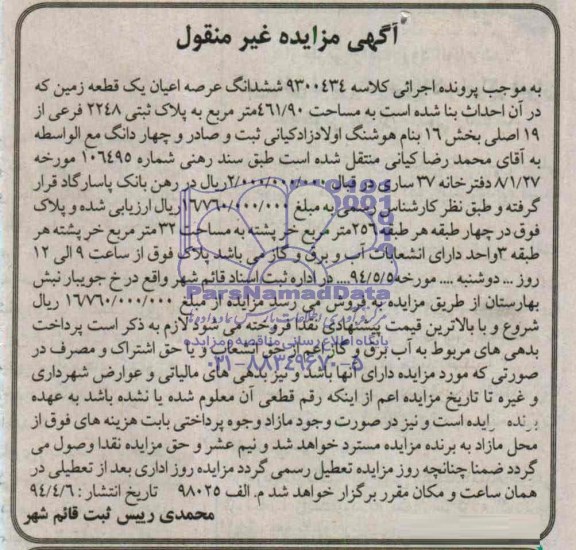 آگهی مزایده غیر منقول
به موجب پرونده اجرائی کلاسه ۹۳۰۰۴۳۴ ششدانگ عرصه اعیان یک قطعه زمین که
در آن احداث بنا شده است به مساحت ۴۶۱/۹۰متر مربع به پلاک ثبتی ۲۲۴۸ فرعی از
۱۹ اصلی بخش ۱۶ بنام هوشنگ اولادزادکیانی ثبت و صادر و چهار دانگ مع الواسطه
به آقای محمد رضا کیانی منتقل شده است طبق سند رهنی شماره ۱۰۶۴۹۵ مورخه
۸/۱/۲۷ دفترخانه ۳۷ ساری در قبال ۲/۰۰۰/۰۰۰/۰۰۰ریال در رهن بانک پاسارگاد قرار
گرفته و طبق نظر کارشناس رسمی به مبلغ ۱۶۷۶۰/۰۰۰/۰۰۰ریال ارزیابی شده و پلاک
فوق در چهار طبقه هر طبقه ۲۵۶متر مربع خر پشته به مساحت ۳۲متر مربع خر پشته هر
طبقه ۳واحد دارای انشعابات آب و برق و گاز می باشد پلاک فوق از ساعت ۹ الی ۱۲
روز ... دوشنبه .... مورخه۹۴/۵/۵.... در اداره ثبت اسناد قائم شهر واقع در خ جویبار نبش
بهارستان از طریق مزایده به فروش می رسد مزایده از مبلغ ۱۶۷۶۰/۰۰۰/۰۰۰ ریال
شروع و با بالاترین قیمت پیشنهادی نقدا فروخته می شود لازم به ذکر است پرداخت
بدهی های مربوط به آب برق و گاز اعم از حق انشعاب و یا حق اشتراک و مصرف در
صورتی که مورد مزایده دارای آنها باشد و نیز بدهی های مالیاتی و عوارض شهرداری
و غیره تا تاریخ مزایده اعم از اینکه رقم قطعی آن معلوم شده یا نشده باشد به عهده
برنده مزایده است و نیز در صورت وجود مازاد وجوه پرداختی بابت هزینه های فوق از
محل مازاد به برنده مزایده مسترد خواهد شد و نیم عشر و حق مزایده نقدا وصول می
گردد ضمنا چنانچه روز مزایده تعطیل رسمی گردد مزایده روز اداری بعد از تعطیلی در
همان ساعت و مکان مقرر برگزار خواهد شد م. الف ۹۸۰۲۵ تاریخ انتشار : ۹۴/۴/۶
محمدی رییس ثبت قائم شهر
ParsNamadData
پایگاه اطلاع رسانی مناقصه و مزایده
۰۲۱-۸۸۳۴۹۶۷۰-۵